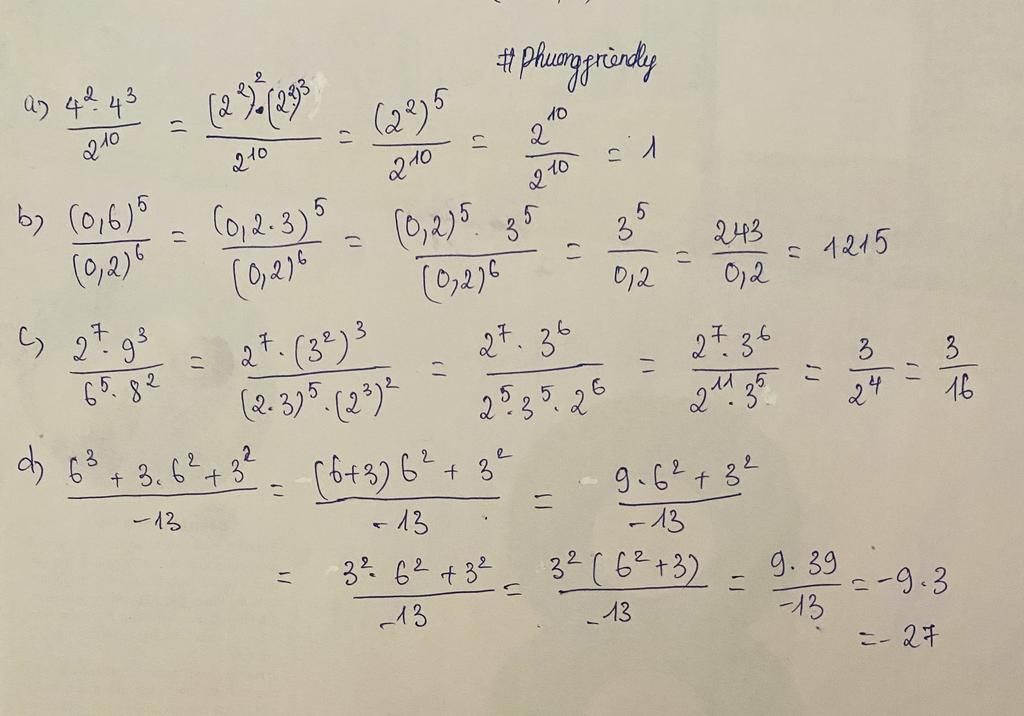 #Phuongfriendly
a) 4²·4³/2¹⁰ = (2²)²·(2²)³/2¹⁰ = (2²)⁵/2¹⁰ = 2¹⁰/2¹⁰ = 1
b) (0,6)⁵/(0,2)⁶ = (0,2·3)⁵/(0,2)⁶ = (0,2)⁵·3⁵/(0,2)⁶ = 3⁵/0,2 = 243/0,2 = 1215
c) 2⁷·9³/6⁵·8² = 2⁷·(3²)³/(2·3)⁵·(2³)² = 2⁷·3⁶/2⁵·3⁵·2⁶ = 2⁷·3⁶/2¹¹·3⁵ = 3/2⁴ = 3/16
d) 6³ + 3·6² + 3²/-13 = (6+3)6² + 3²/-13 = 9·6² + 3²/-13
= 3²·6² + 3²/-13 = 3²(6²+3)/-13 = 9·39/-13 = -9·3
= -27